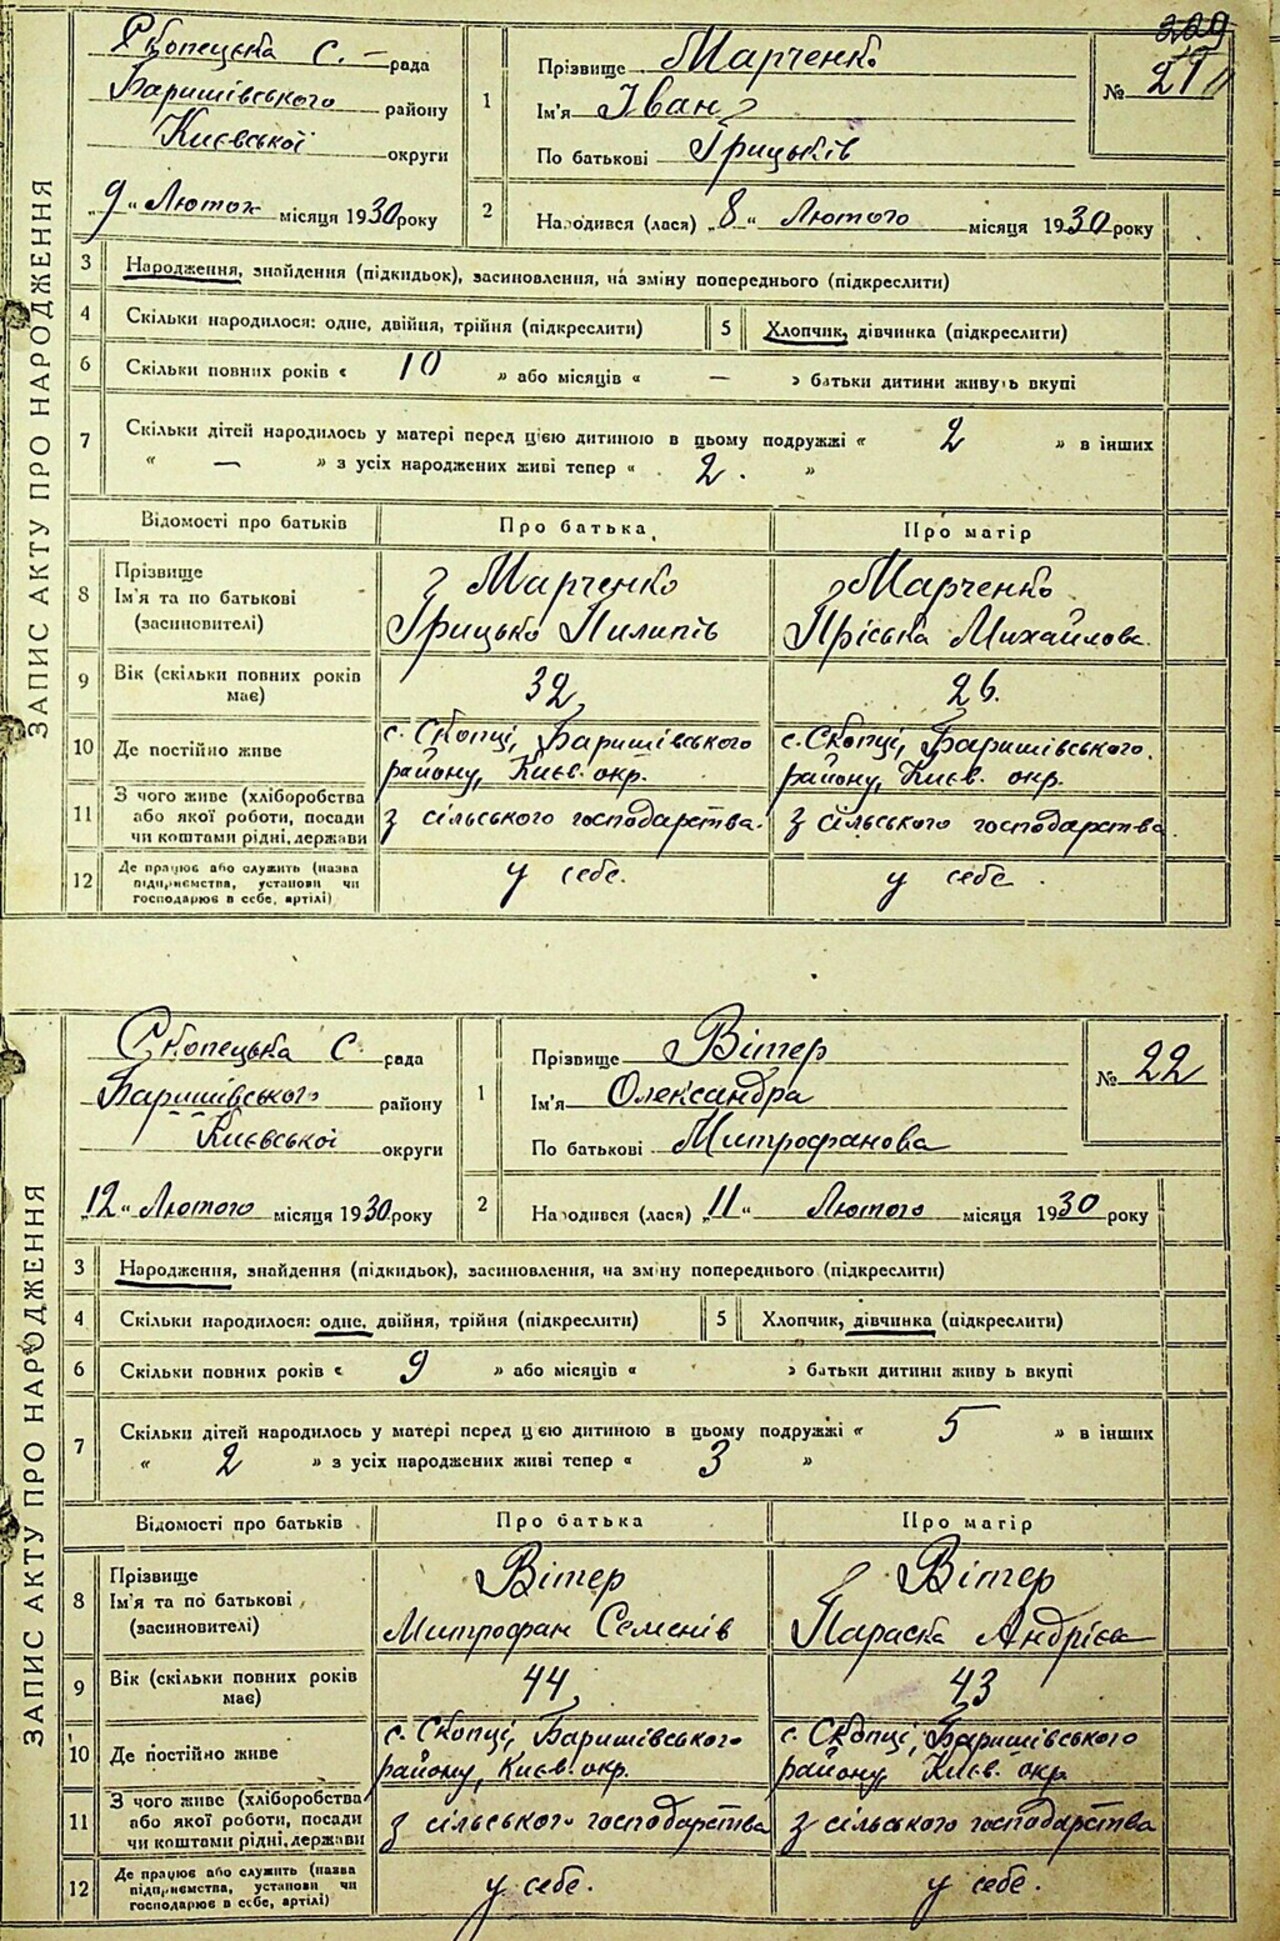 229
ЗАПИС АКТУ ПРО НАРОДЖЕННЯ
Скопецька С. – рада
Баришівського району
Києвської округи
„9“ Люток місяця 1930 року
1 Прізвище Марченко
Ім'я Іван
По батькові Грицьків
№ 21
2 Народився (лася) „8“ Лютого місяця 1930 року
3 Народження, знайдення (підкидьок), засиновлення, на зміну попереднього (підкреслити)
4 Скільки народилося: одне, двійня, трійня (підкреслити) 5 Хлопчик, дівчинка (підкреслити)
6 Скільки повних років « 10 » або місяців « – » батьки дитини живуть вкупі
7 Скільки дітей народилось у матері перед цією дитиною в цьому подружжі « 2 » в інших
« – » з усіх народжених живі тепер « 2. »
Відомості про батьків Про батька Про матір
8 Прізвище Ім'я та по батькові (засиновителі)
Марченко Грицько Пилипів
Марченко Пріська Михайлова
9 Вік (скільки повних років має) 32 26.
10 Де постійно живе
с. Скопці, Баришівського району, Києв. окр.
с. Скопці, Баришівського району, Києв. окр.
11 З чого живе (хліборобства або якої роботи, посади чи коштами рідні, держави
з сільського господарства.
з сільського господарства
12 Де працює або служить (назва підприємства, установи чи господарює в себе, артілі)
у себе.
у себе.
ЗАПИС АКТУ ПРО НАРОДЖЕННЯ
Скопецька С. рада
Баришівського району
Києвської округи
„12“ Лютого місяця 1930 року
1 Прізвище Вітер
Ім'я Олександра
По батькові Митрофанова
№ 22
2 Народився (лася) „11“ Лютого місяця 1930 року
3 Народження, знайдення (підкидьок), засиновлення, на зміну попереднього (підкреслити)
4 Скільки народилося: одне, двійня, трійня (підкреслити) 5 Хлопчик, дівчинка (підкреслити)
6 Скільки повних років « 9 » або місяців « » батьки дитини живуть вкупі
7 Скільки дітей народилось у матері перед цією дитиною в цьому подружжі « 5 » в інших
« 2 » з усіх народжених живі тепер « 3 »
Відомості про батьків Про батька Про матір
8 Прізвище Ім'я та по батькові (засиновителі)
Вітер Митрофан Семенів
Вітер Параска Андрієва
9 Вік (скільки повних років має) 44 43
10 Де постійно живе
с. Скопці, Баришівського району, Києв. окр.
с. Скопці, Баришівського району, Києв. окр
11 З чого живе (хліборобства або якої роботи, посади чи коштами рідні, держави
з сільського господарства
з сільського господарства
12 Де працює або служить (назва підприємства, установи чи господарює в себе, артілі)
у себе.
у себе.